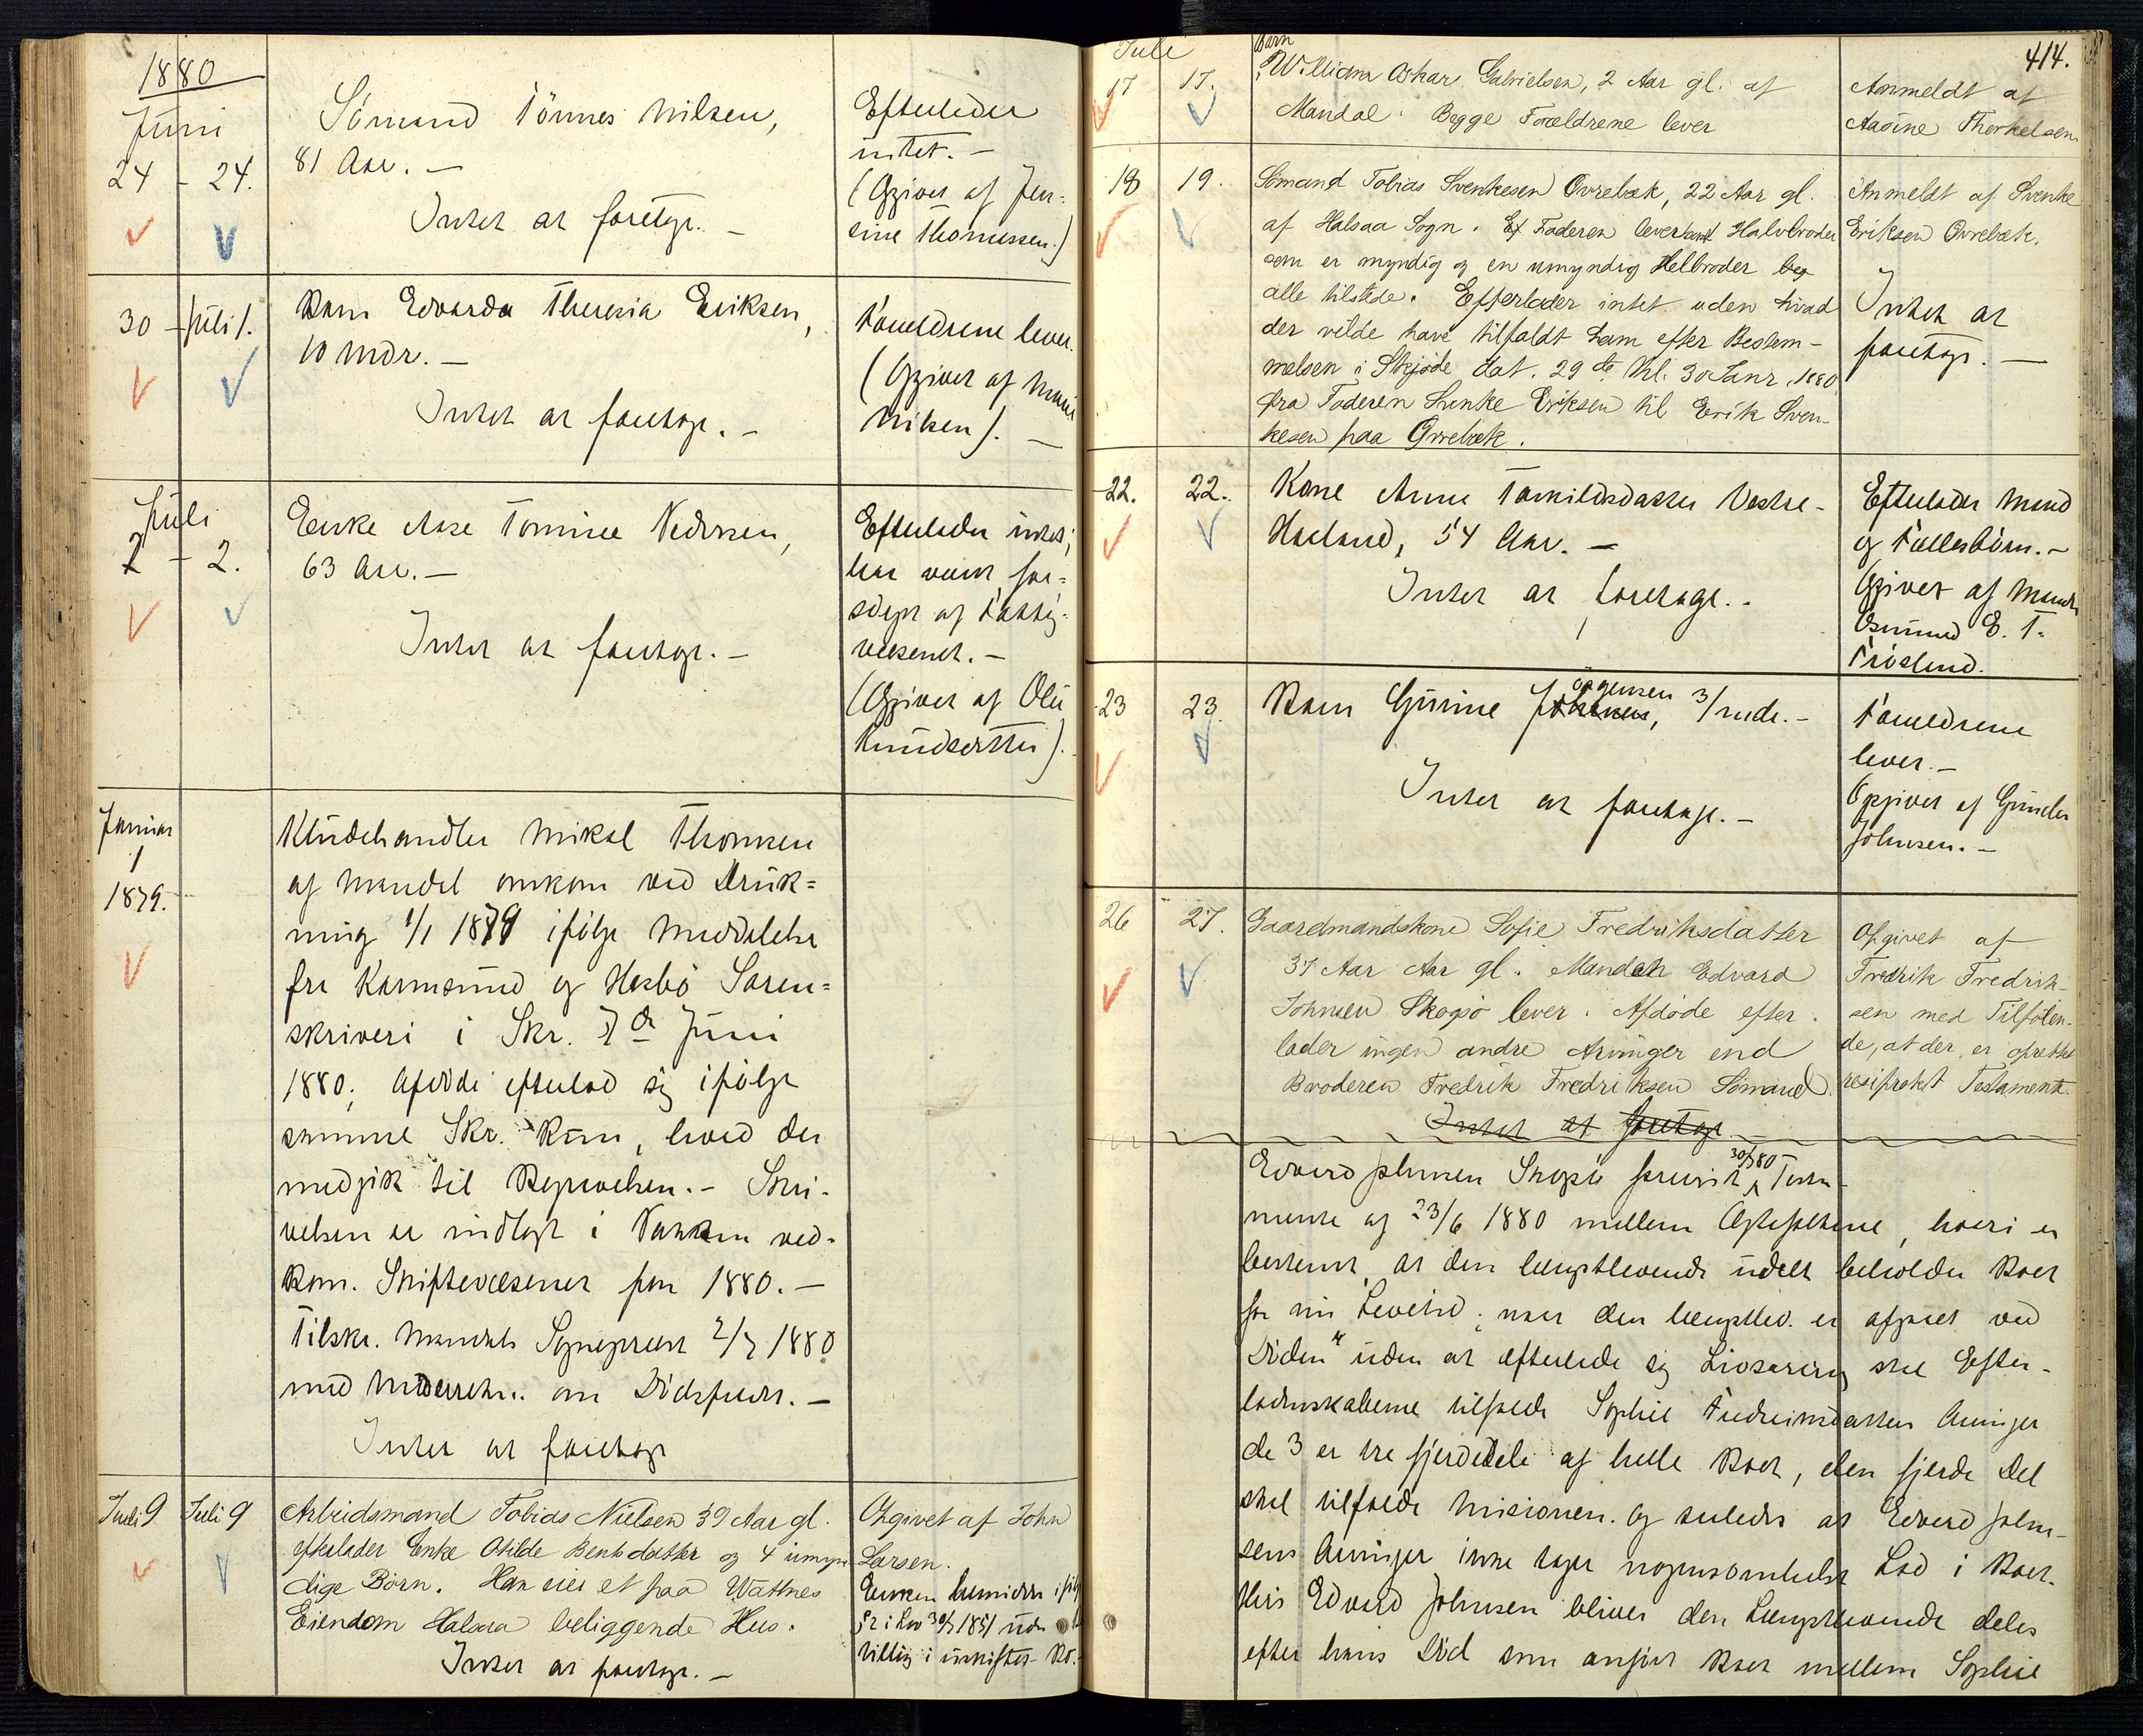 1880
Juni
24 - 24.
Sömand Tönnes Nilsen,
81 Aar. -
Intet at foretage. -
Efterlader
intet. -
(Opgivet af Jen-
sine Thomassen.)
30 - Juli 1.
Barn Edvarda Theresia Eriksen,
10 Mdr. -
Intet at foretage. -
Forældrene lever.
(Opgivet af Marie
Nilsen). -
Juli
2 - 2.
Enke Aase Tomine Pedersen,
63 Aar. -
Intet at foretage. -
Efterlader intet;
har været for-
sörget af Fattig-
væsenet. -
(Opgivet af Olea
Knudsdatter).
Januar
1
1879.
Kludehandler Mikal Thomsen
af Mandal omkom ved Druk-
ning 1/1 1879 ifölge Meddelelse
fra Karmsund og Hesbö Soren-
skriveri i Skr. 7de Juni
1880; Afdöde efterlod sig ifölge
samme Skr. kun, hvad der
medgik til Begravelsen. - Skri-
velsen er indlagt i Pakken ved-
kom. Skiftevæsenet for 1880. -
Tilskr. Mandals Sogneprest 2/7 1880
med Underretn. om Dödsfaldet. -
Intet at foretage
Juli 9 Juli 9
Arbeidsmand Tobias Nielsen 39 Aar gl.
efterlader Enke Otilde Bentsdatter og 4 umyn-
dige Börn. Han eier et paa Wattnes
Eiendom Halsaa beliggende Hus.
Intet at foretage. -
Opgivet af John
Larsen.
Enken hensidder ifölg
i Lov 30/7 1851
villig i uskiftet Bo.
414.
Juli
17 17.
Barn
William Oskar Gabrielsen, 2 Aar gl. af
Mandal. Begge Forældrene lever
Anmeldt af
Aasine Therkelsen
18 19.
Sömand Tobias Svenkesen Övrebæk, 22 Aar gl.
af Halsaa Sogn. Faderen lever samt Halvbroder
som er myndig og en umyndig Helbroder
alle tilstede. Efterlader intet uden hvad
der vilde have tilfaldt ham efter Bestem-
melsen i Skjöde dat. 29de thl. 30 Janr. 1880
fra Faderen Svenke Eriksen til Eerik Sven-
kesen paa Övrebæk.
Anmeldt af Svenke
Eriksen Övrebæk.
Intet at
foretage. -
22. 22.
Kone Anne Tarnildsdatter Vestre-
Haaland, 54 Aar. -
Intet at foretage. -
Efterlader Mand
og Fællesbörn. -
Opgivet af Manden
Osmund E. T.
Fröslund.
23 23.
Barn Gurine Jörgensen, 3/4 mdr. -
Intet at foretage. -
Forældrene
lever. -
Opgivet af Gunder
Johnsen. -
26 27.
Gaardmandskone Sofie Fredriksdatter
37 Aar Aar gl. Manden Edvard
Johnsen Skogsö lever. Afdöde efter-
lader ingen andre Arvinger end
Broderen Fredrik Fredriksen Sömand.
Intet at foretage
Opgivet af
Fredrik Fredrik-
sen med Tilföien-
de, at der er oprettet
resiprokt Testamente.
Edvard Johnsen Skogsö foreviste 30/7 80 Testa-
mente af 23/6 1880 mellem Ægtefolkene, hvori er
bestemt, at den længstlevende udelt beholder Boet
for sin Levetid; naar den længstlev. er afgaaet ved
Döden uden at efterlade sig Livsarving skal Efter-
ladenskaberne tilfalde Sophie Fredriksdatters Arvinger
de 3 er tre fjerdedele af hele Boet, den fjerde Del
skal tilfalde Misionen. Og saaledes at Edvard John-
sens Arvinger ikke tager nogensomhelst Lod i Boet.
Hvis Edvard Johnsen bliver den Længstlevende deles
efter hans Död som anfört Boet mellem Sophie